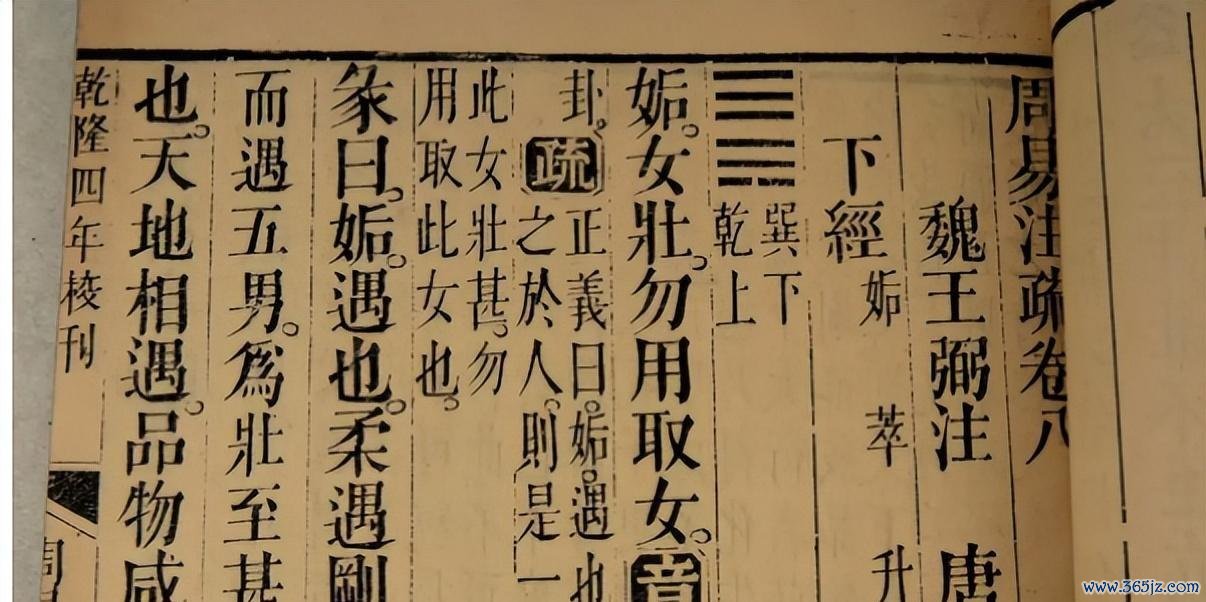 周易注疏卷八
魏王弼注 唐
下經 姤 萃 升
巽下
乾上
姤。女壯。勿用取女。音
卦。疏正義曰。姤。遇也
之於人。則是一
此女壯甚。勿
用取此女也。
彖曰。姤。遇也。柔遇剛
而遇五男。爲壯至甚
也。天地相遇。品物咸
乾隆四年校刊
周
www.365jz.com